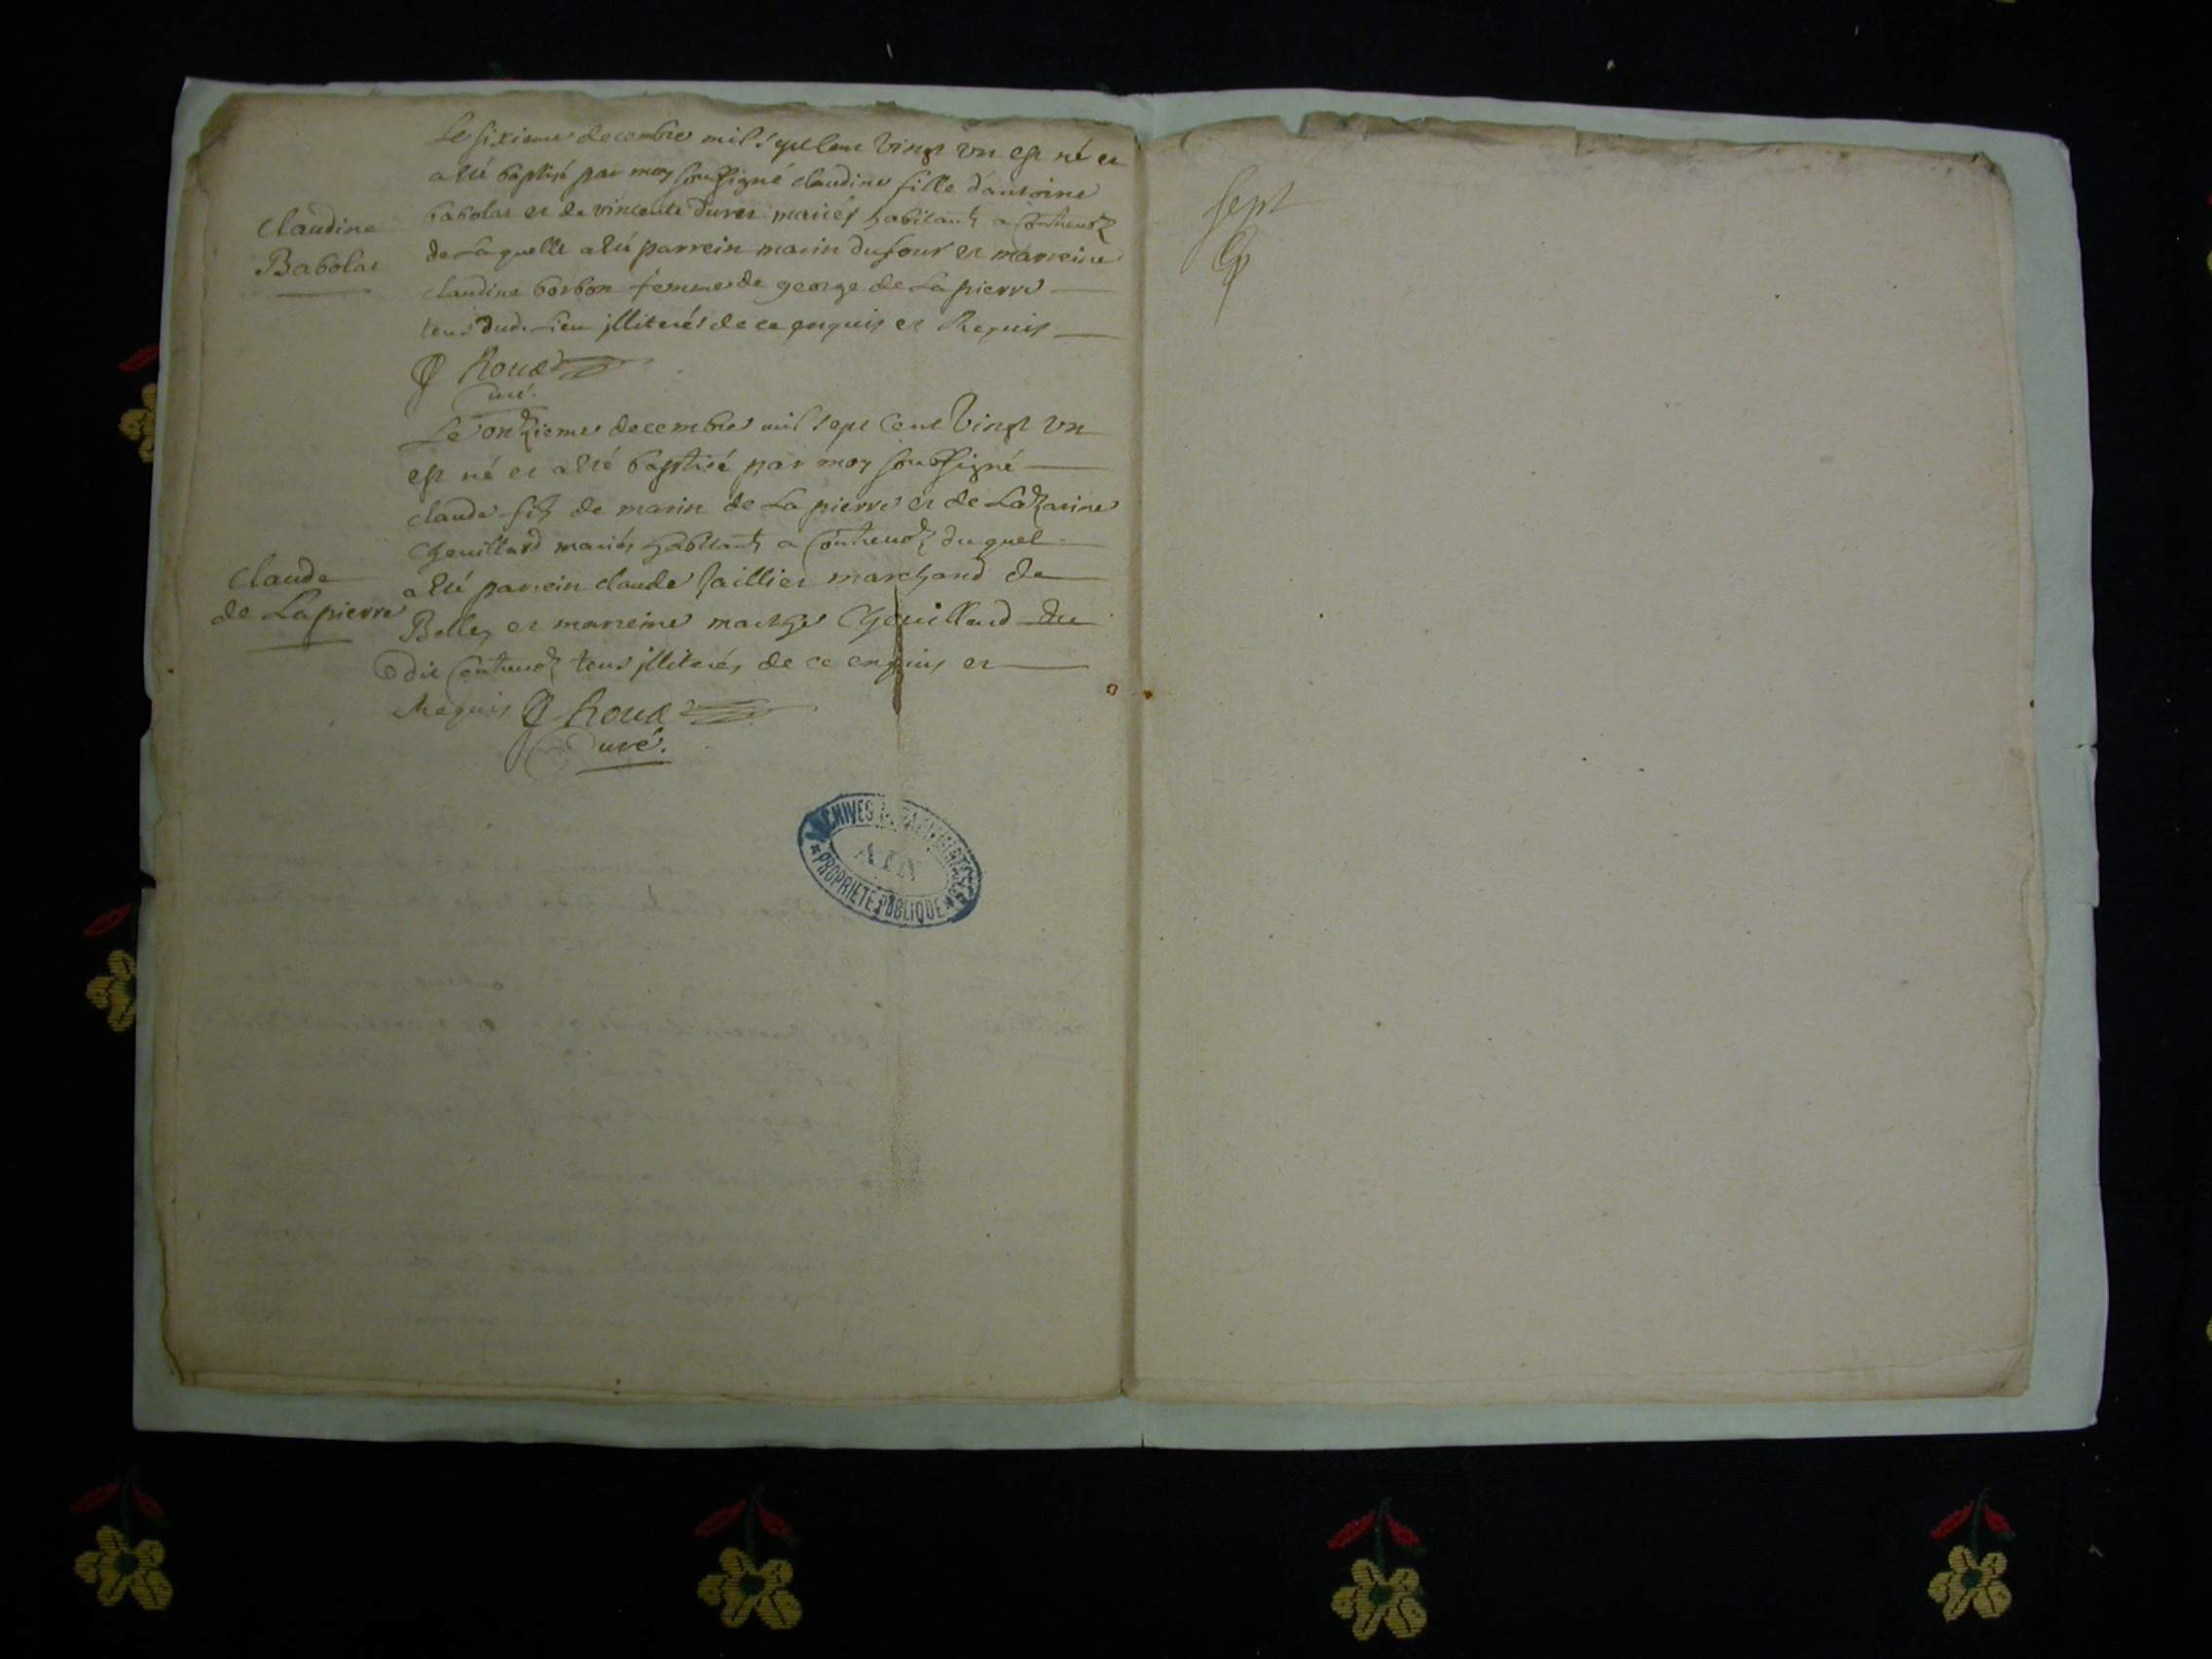 Le sixieme decembre mil sept cens vingt vn est né et
a eté baptisé par moy soussigné claudine fille d'antoine
babolat et de vincente mariés habitants a Conheudz
Claudine
Babolat
de Laquelle a eté parrein marin dufour et marreine
claudine borbon femme de george de La pierre
tous dud. Lieu jlliterés de ce enquis et Requis
Roux
Curé.
Le onzieme decembre mil sept cens vingt vn
est né et a eté baptisé par moy soussigné
claude fils de marin de La pierre et de Lazarine
Cheuillard mariés habitants a Conheudz duquel
Claude
de Lapierre
a eté parrein claude marchand de
Belley et marreine marthe Cheuillard du
dit Conheudz tous jlliterés de ce enquis et
Requis Roux
Curé.
ARCHIVES DEPARTEMENTALES
AIN
PROPRIETE PUBLIQUE
sept